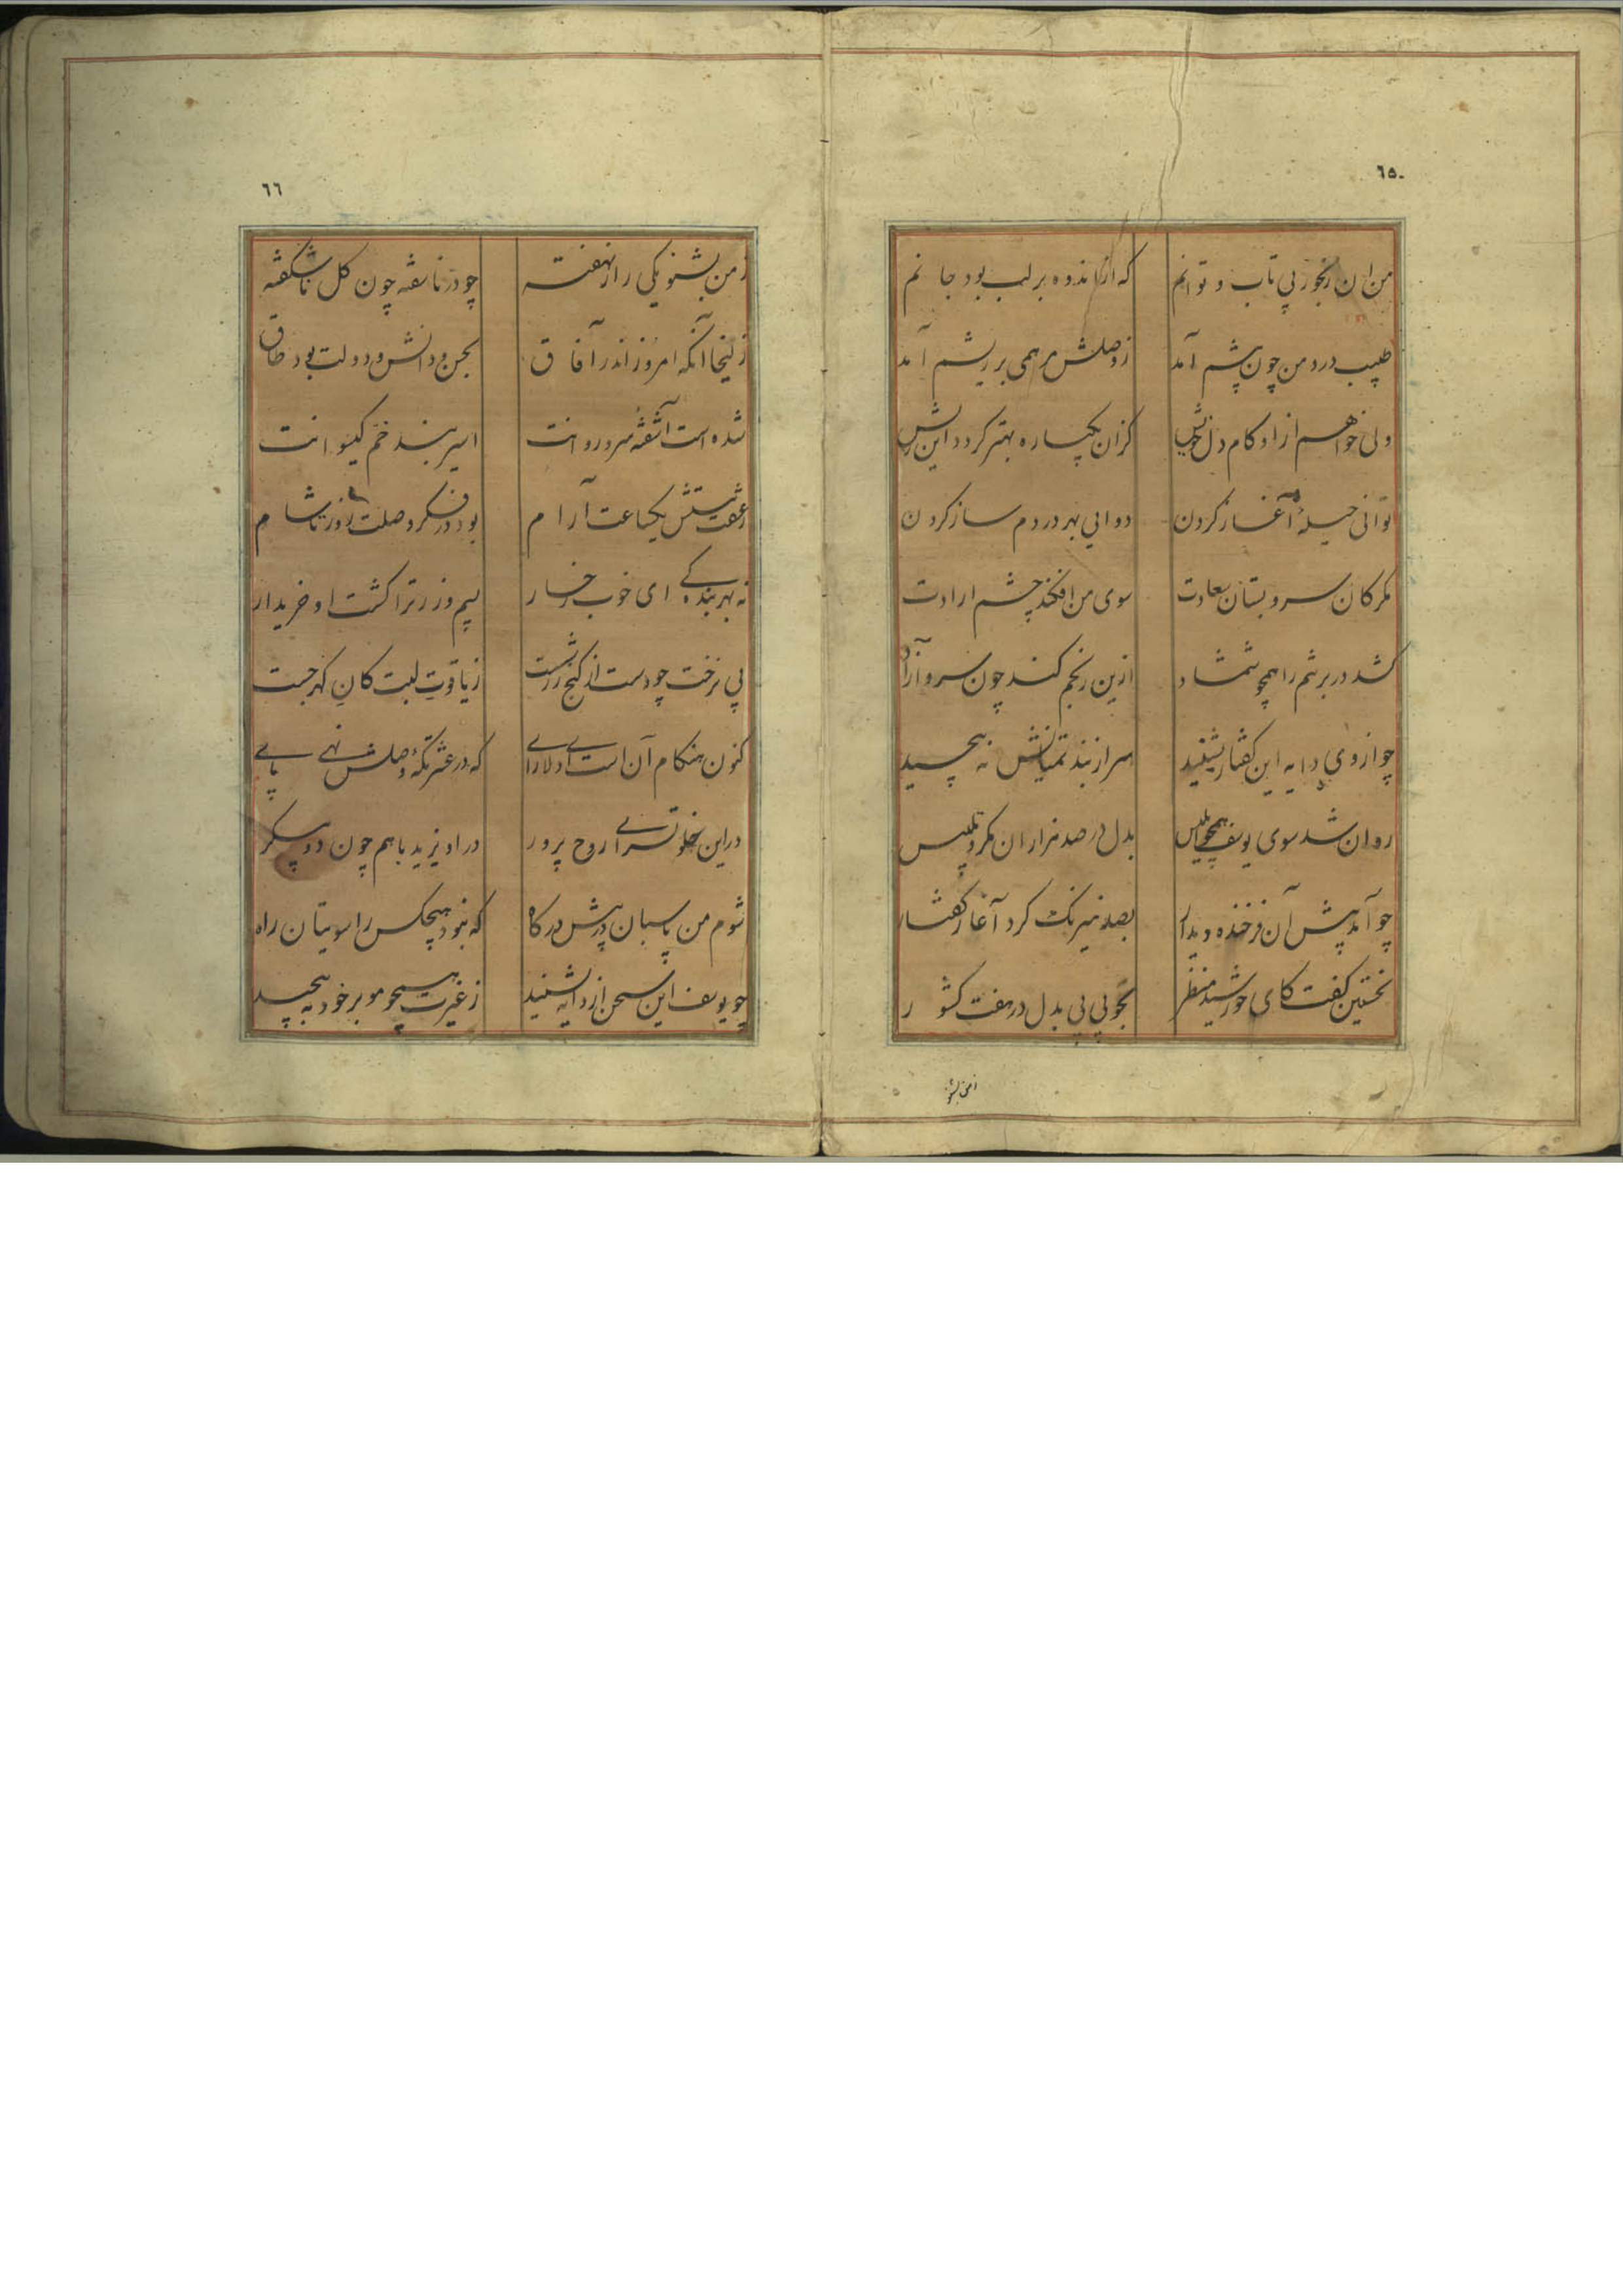 ٦٥
من ان رنجور بی تاب و توانم که از اندوه بر لب بود جانم
طبیب درد من چون پیشم آمد ز وصلش مرهمی بر ریشم آمد
ولی خواهم از او کام دل خویش کزان یکباره بهتر کردد این ریش
توانی حیلهٔ آغاز کردن دوایی بهر دردم ساز کردن
مکر کان سرو بستان سعادت سوی من افکند چشم ارادت
کشد در برتنم را همچو شمشاد ازین رنجم کند چون سرو آزاد
چو از وی دایه این کفتار بشنید سر از بند تمنایش نه پیچید
روان شد سوی یوسف همچو ابلیس بدل در صد هزاران مکر و تلبیس
چو آمد پیش آن فرخنده دیدار بصد نیرنک کرد آغاز کفتار
نخستین کفت کای خورشید منظر بخوبی بی بدل در هفت کشور
ز من بشنو
٦٦
ز من بشنو یکی راز نهفته چو در ناسفه چون کل ناشکفته
زلیخا آنکه امروز اندر آفاق بحسن و دانش و دولت بود طاق
شده است آشفتهٔ سرو روانت اسیر بند خم کیسوانت
ز عشقت نیستش یکساعت آرام بود در فکر وصلت روز تا شام
نه بهر بندکی ای خوب رخسار بسیم و زر ترا کشت او خریدار
پی نرخت چو دست از کنج زر شست ز یاقوت لبت کان کهر جست
کنون هنکام آن است ای دلارای که در عشرتکهٔ وصلش نهی پای
در این خلوتسرای روح پرور در اویزید با هم چون دو پیکر
شوم من پاسبان پیش درکاه که نبود هیچکس را سویتان راه
چو یوسف این سخن از دایه بشنید ز غیرت همچو مو بر خود به پیچید